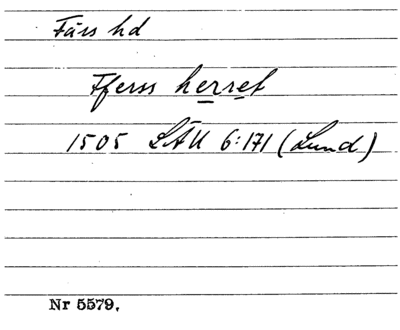 Färs hd
Fferss herret
1505 LÄU 6:171 (Lund)
Nr 5579.